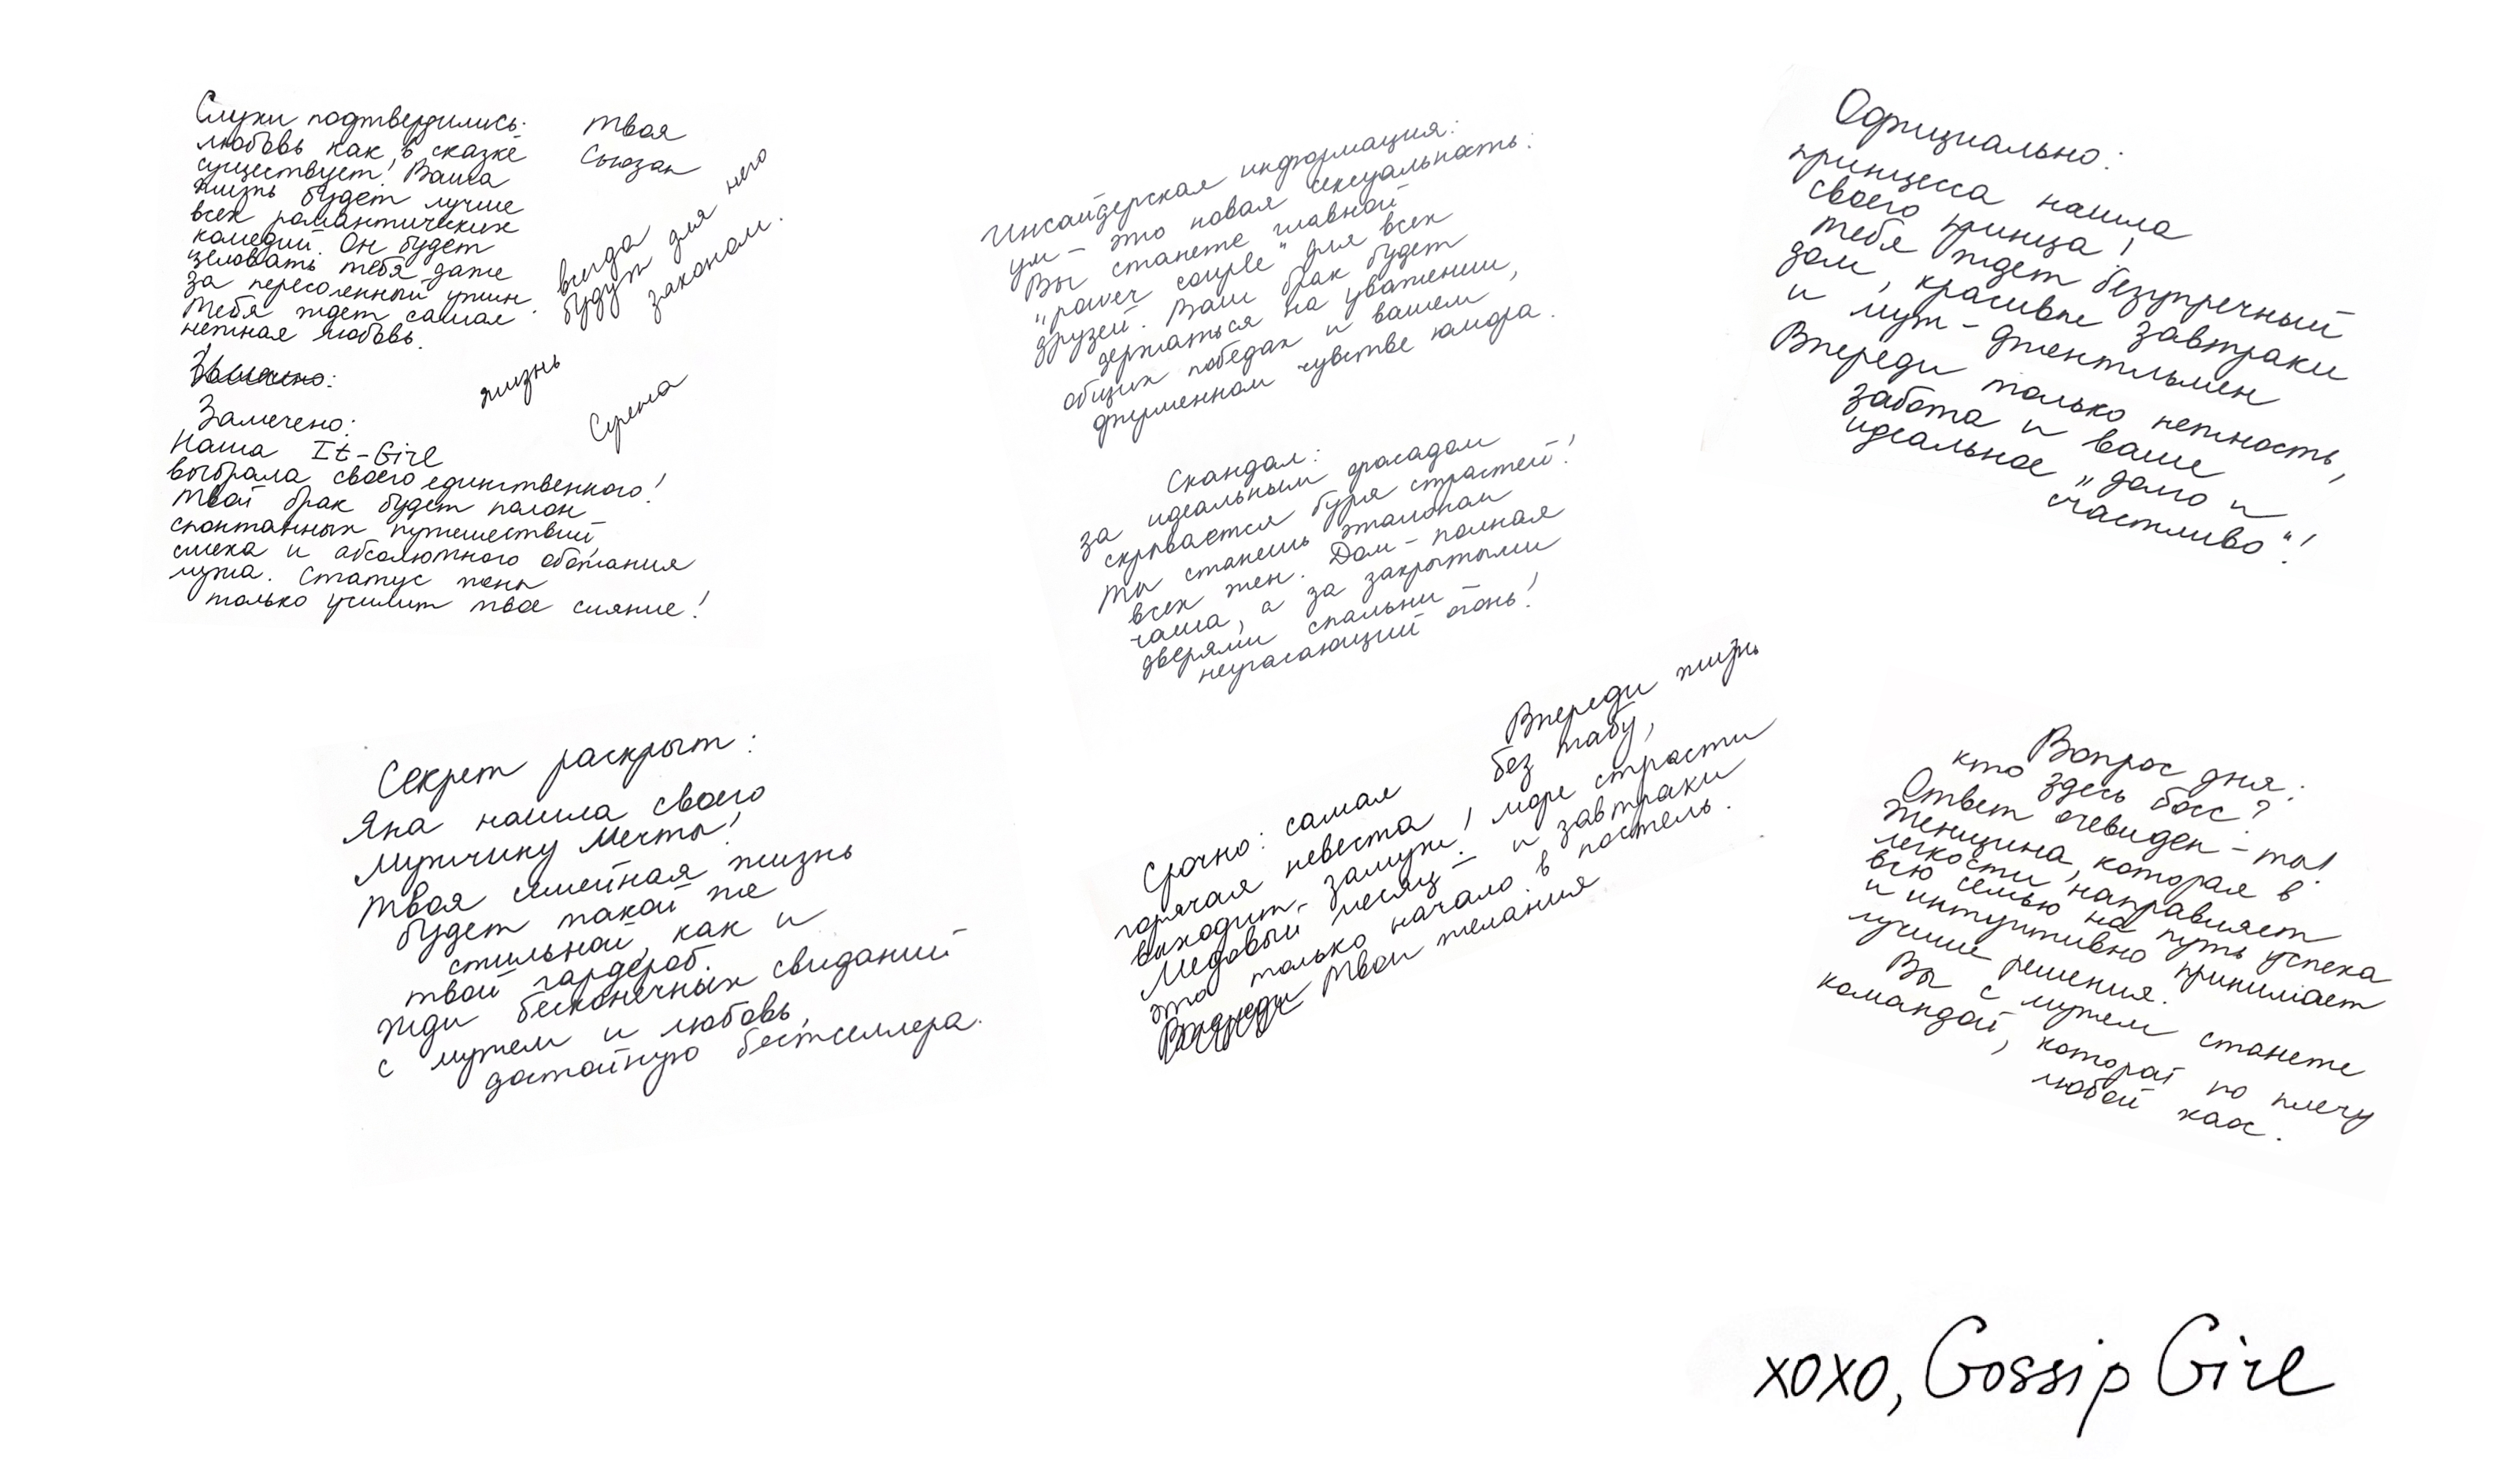 Слухи подтвердились:
любовь как в сказке
существует! Ваша
жизнь будет лучше
всех романтических
комедий. Он будет
целовать тебя даже
за пересоленный ужин.
Тебя ждет самая
нежная любовь.
твоя
Сьюзан
всегда
будут для него
законом.
жизнь
Серена
Замечено:
Наша It-Girl
выбрала своего единственного!
Твой брак будет полон
спонтанных путешествий,
смеха и абсолютного обожания
мужа. Статус жены
только усилит твое сияние!
Инсайдерская информация:
ум - это новая сексуальность:
Вы станете главной
"power couple" для всех
друзей. Ваш брак будет
держаться на уважении,
общих победах и вашем
фирменном чувстве юмора.
Скандал:
за идеальным фасадом
скрывается буря страстей!
Ты станешь эталоном
всех жен. Дом - полная
чаша, а за закрытыми
дверями спальни -
неугасающий огонь!
Официально:
принцесса нашла
своего принца!
Тебя ждет безупречный
дом, красивые завтраки
и муж - джентльмен
Впереди только нежность,
забота и ваше
идеальное "долго и
счастливо"!
Секрет раскрыт:
Яна нашла своего
мужчину мечты!
Твоя семейная жизнь
будет такой же
стильной, как и
твой гардероб.
Жди бесконечных свиданий
с мужем и любовь,
достойную бестселлера.
Впереди жизнь
без табу,
море страсти
и завтраки
в постель.
Срочно: самая
горячая невеста
выходит замуж!
Медовый месяц -
это только начало.
Впереди Твои желания
Вопрос дня:
кто здесь босс?
Ответ очевиден - ты!
Женщина, которая в
легкости направляет
всю семью на путь успеха
и интуитивно принимает
лучшие решения.
Вы с мужем станете
командой, которой по плечу
любой хаос.
xoxo, Gossip Girl